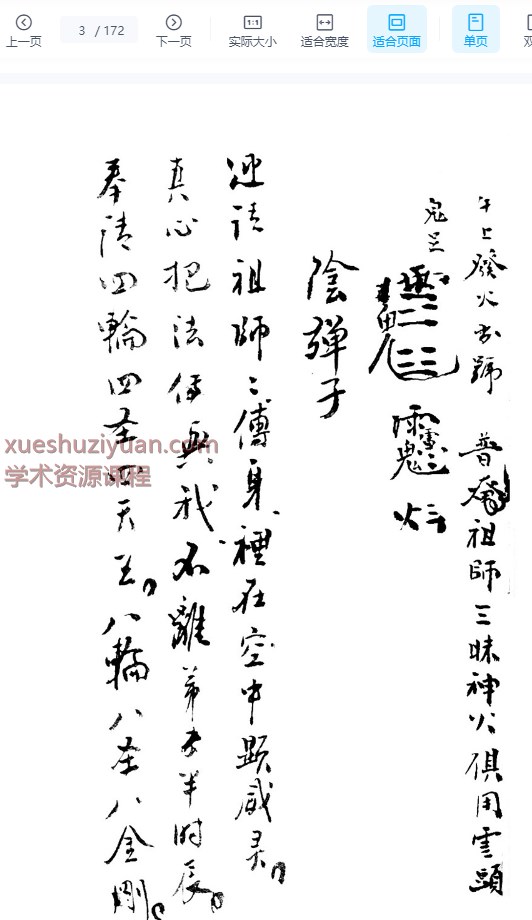 上一页 3 / 172 下一页 实际大小 适合宽度 适合页面 单页 双
午上發火字號 普庵祖師三昧神火俱用雲頭
鬼旦
陰弹子
迎請祖師二傅身禮在空中顕威灵
真心把法傳與我不離弟子半時辰
奉請四輪四圣四天王八輪八圣八金剛
xueshuziyuan.com
学术资源课程